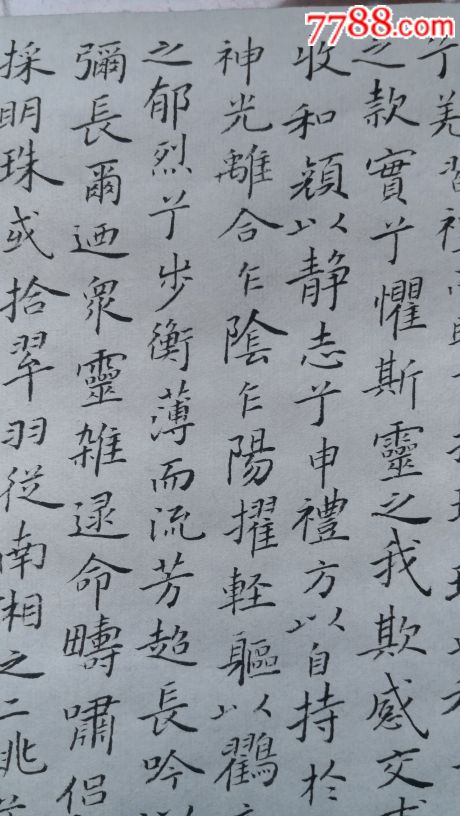 7788.com
兮羌習禮
之款實兮懼斯靈之我欺感交
收和顔以静志兮申禮方以自持於
神光離合乍陰乍陽擢軽軀以鶴
之郁烈兮步衡薄而流芳超長吟以
彌長爾迺衆靈雑遝命疇嘯侶
採明珠或拾翠羽從南湘之二